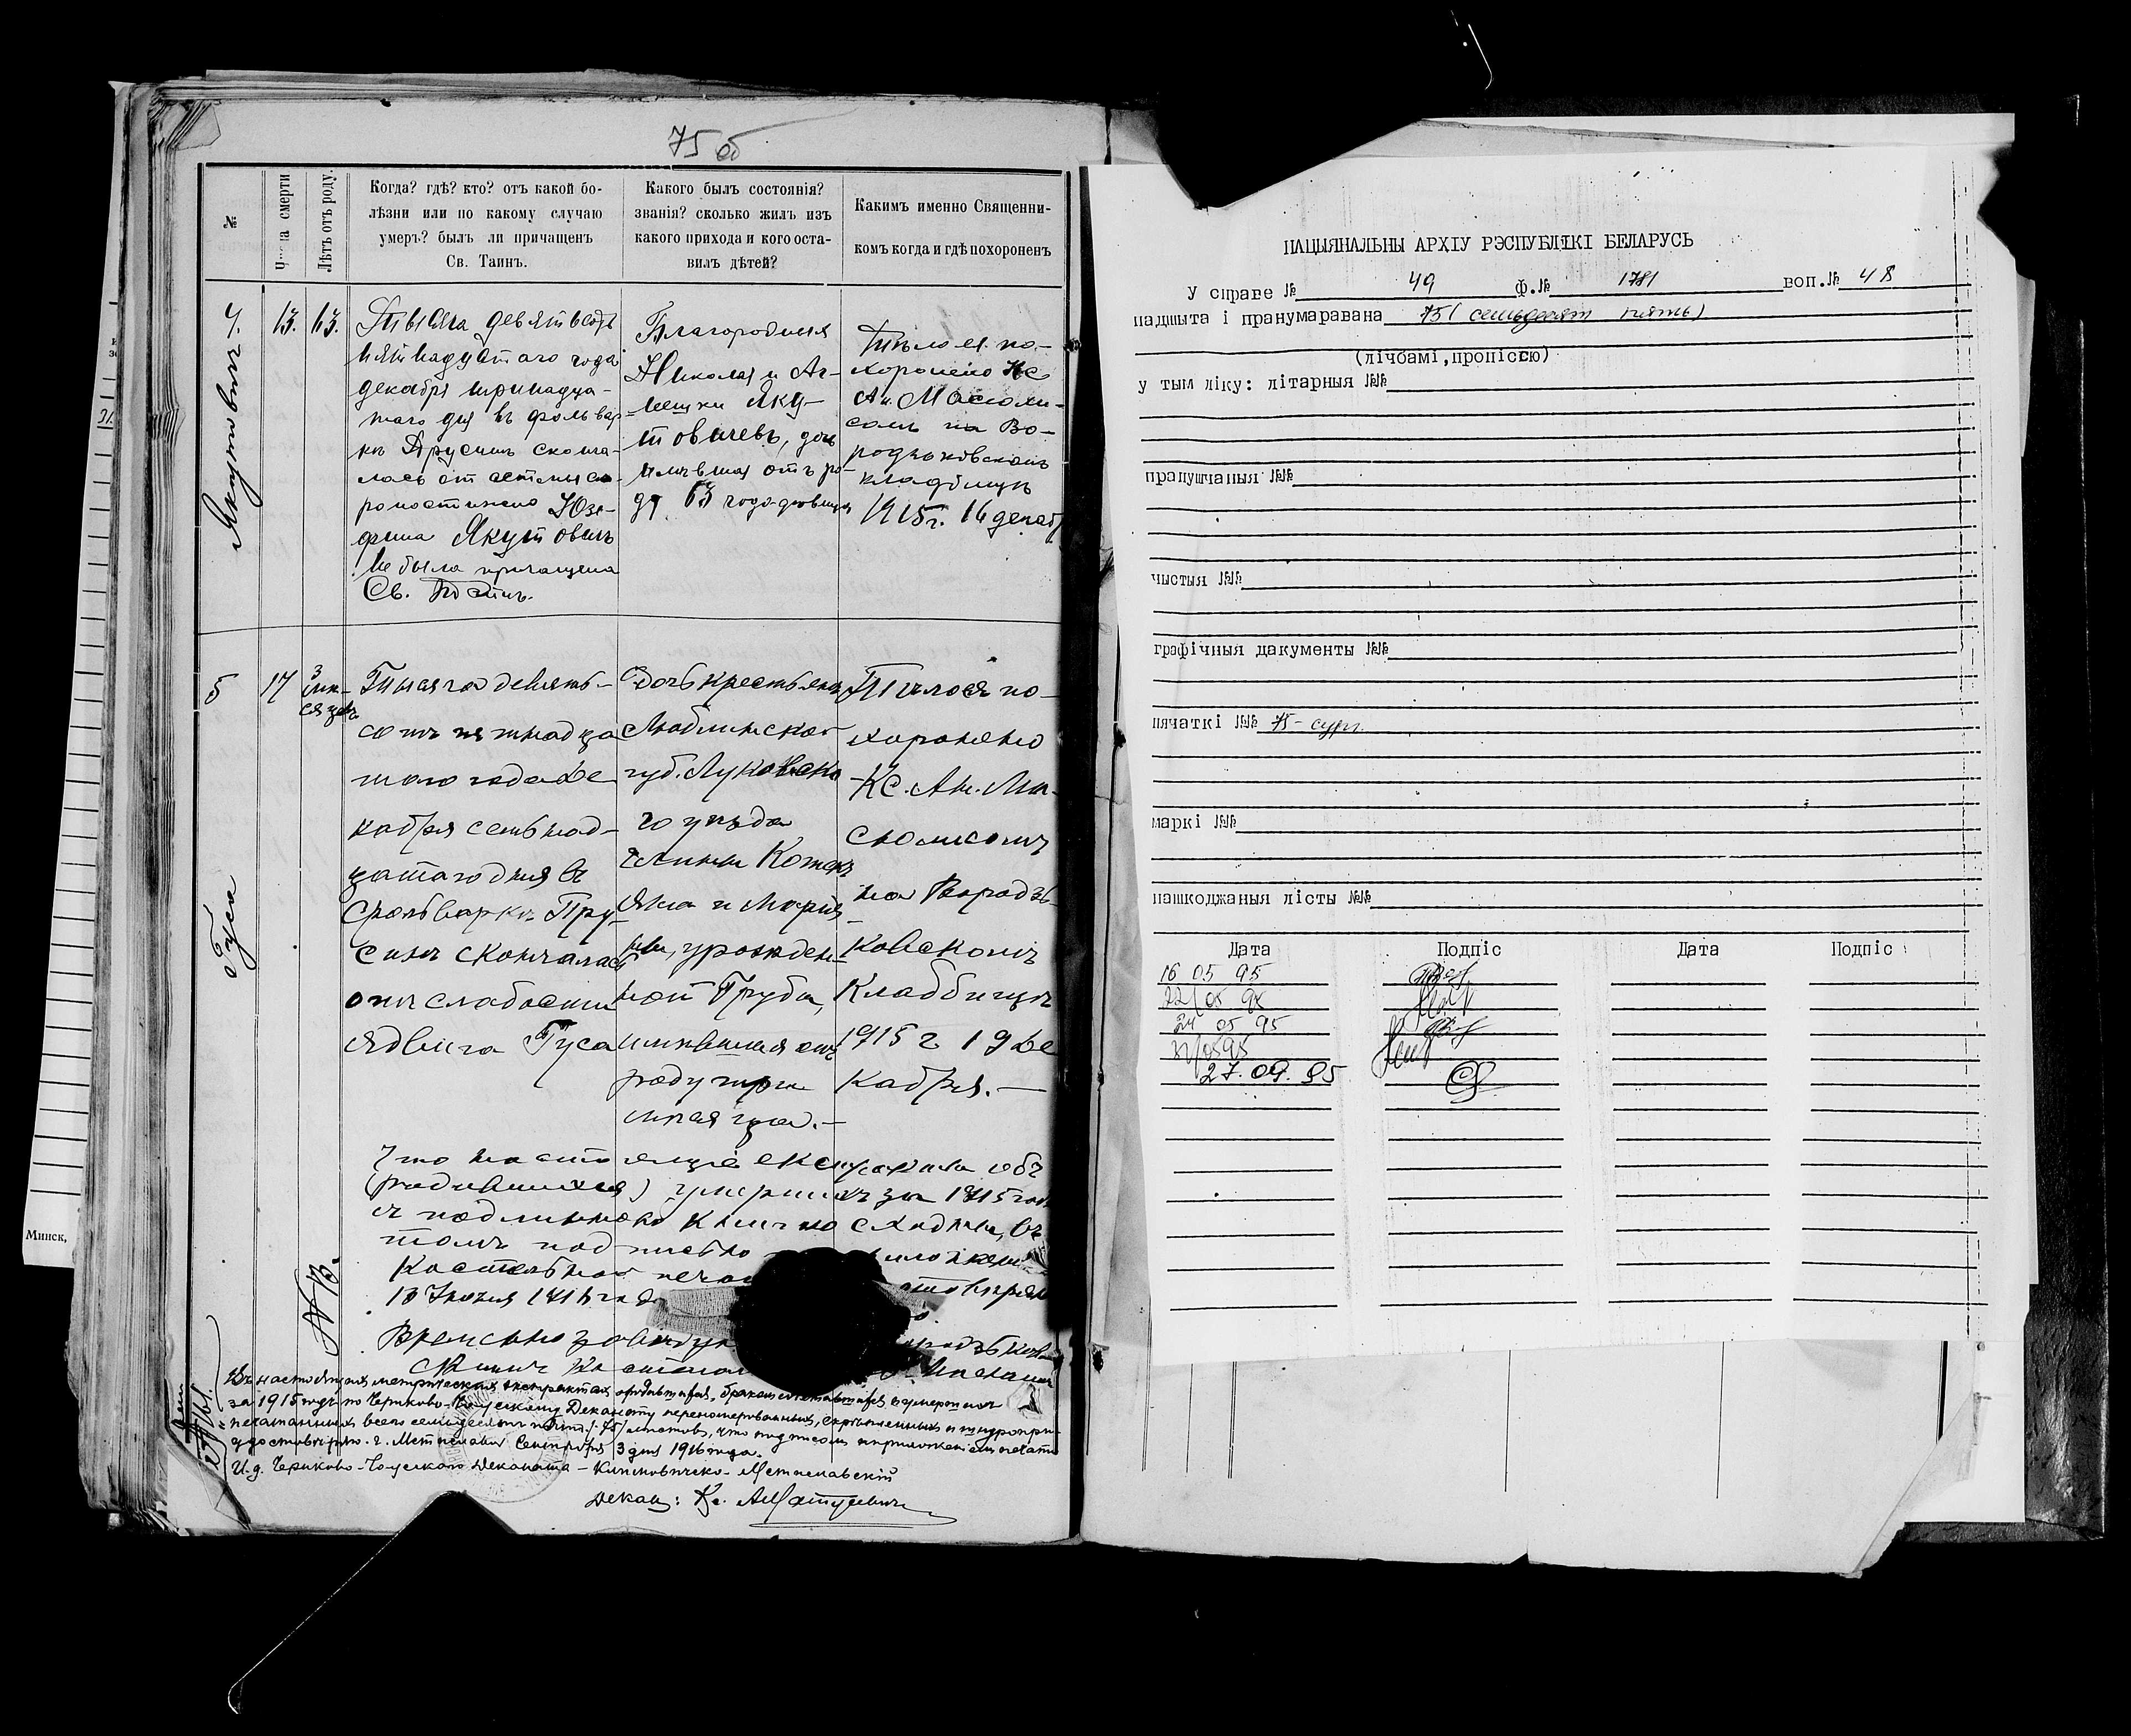 75 об
№
Числа смерти
Лѣтъ отъ роду.
Когда? гдѣ? кто? отъ какой бо-
лѣзни или по какому случаю
умеръ? былъ ли причащенъ
Св. Таинъ.
Какого былъ состоянія?
званія? сколько жилъ изъ
какого прихода и кого оста-
вилъ дѣтей?
Какимъ именно Священни-
комъ когда и гдѣ похороненъ
4.
Якутовичъ
13.
63.
Тысяча девятьсотъ
пятнадцатаго года
декабря тринадца-
таго дня въ фольвар-
кѣ Прусинъ сконча-
лась от астмы ско-
ропостижно Юзе-
фина Якутовичъ
Не была причащена
Св. Таинъ.
Благородныя
Николая и Аг-
нешки Яку-
товичевъ, дочь
имѣвшая отъ ро-
ду 63 года девица
Тѣло ея по-
хоронено Кс
Ан. Масюли-
сомъ на Во-
родьковскомъ
кладбищѣ
1915г. 14 декаб
5
Гуса
17
3 мѣ-
сяцевъ
Тысяча девять-
сотъ пятнадца
таго года де
кабря семнад-
цатаго дня въ
фольваркѣ Пру-
синъ скончалась
отъ слабости
Ядвига Гуса
Дочь крестьянъ
Люблинской
губ. Луковска
го уѣзда
гмины
Яна и Марья
ны, урожден-
ной Груба,
имѣвшая отъ
роду три
мѣсяца.—
Тѣло ея по-
хоронено
Кс. Ан. Ма-
сюлисомъ
на Вородь-
ковскомъ
Кладбищѣ
1915 г 19 де
кабря.—
Что настоящіе екстракты объ
(родившихся) умершихъ за 1915 годъ
съ подлинною книгою сходны, въ
томъ подписью
Костельной печа
1916 года
Временно завѣдую
NB.
Въ настоящихъ метрическихъ экстрактахъ о родившихся, бракосочетавшихся и умершихъ
за 1915 годъ по Чериково-Чаусскому Деканату перенумерованныхъ, скрѣпленныхъ и шнуропри-
печатанныхъ всего семьдесятъ пять /75/ листовъ, что подписомъ и приложеніемъ печати
удостовѣряю. г. Мстиславль Сентября 3 дня 1916 года.
И.д. Чериково-Чаусскаго Деканата – Климовичско-Мстиславскій
Деканъ: Кс. А Матусевичъ
Минск,
НАЦЫЯНАЛЬНЫ АРХІУ РЭСПУБЛІКІ БЕЛАРУСЬ
У справе № 49 Ф.№ 1781 воп.№ 48
падшыта і пранумаравана 75 ( семьдесят пять )
(лічбамі,пропіссю)
у тым ліку: літарныя №№
прапушчаныя №№
чыстыя №№
графічныя дакументы №№
пячаткі №№ 75 - сург.
маркі №№
пашкоджаныя лісты №№
Дата Подпіс Дата Подпіс
16 05 95
22/05 95
24 05 95
27.09.95